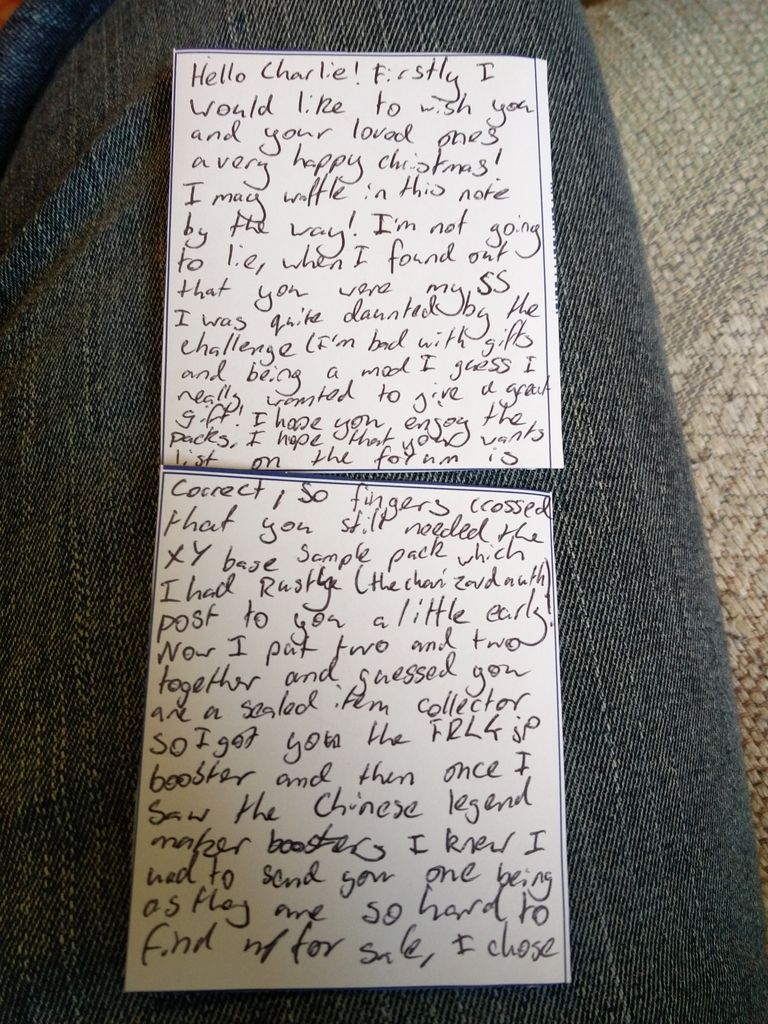 Hello Charlie! Firstly I
would like to wish you
and your loved ones
a very happy christmas!
I may waffle in this note
by the way! I'm not going
to lie, when I found out
that you were my SS
I was quite daunted by the
challenge (I'm bad with gifts
and being a mod I guess I
really wanted to give a great
gift! I hope you enjoy the
packs. I hope that your wants
list on the forum is
correct, so fingers crossed
that you still needed the
XY base sample pack which
I had Rustye (thecharizardauth)
post to you a little early!
Now I put two and two
together and guessed you
are a sealed item collector
so I got you the FRLG jp
booster and then once I
saw the Chinese legend
maker boosters I knew I
had to send you one being
as they are so hard to
find for sale, I chose